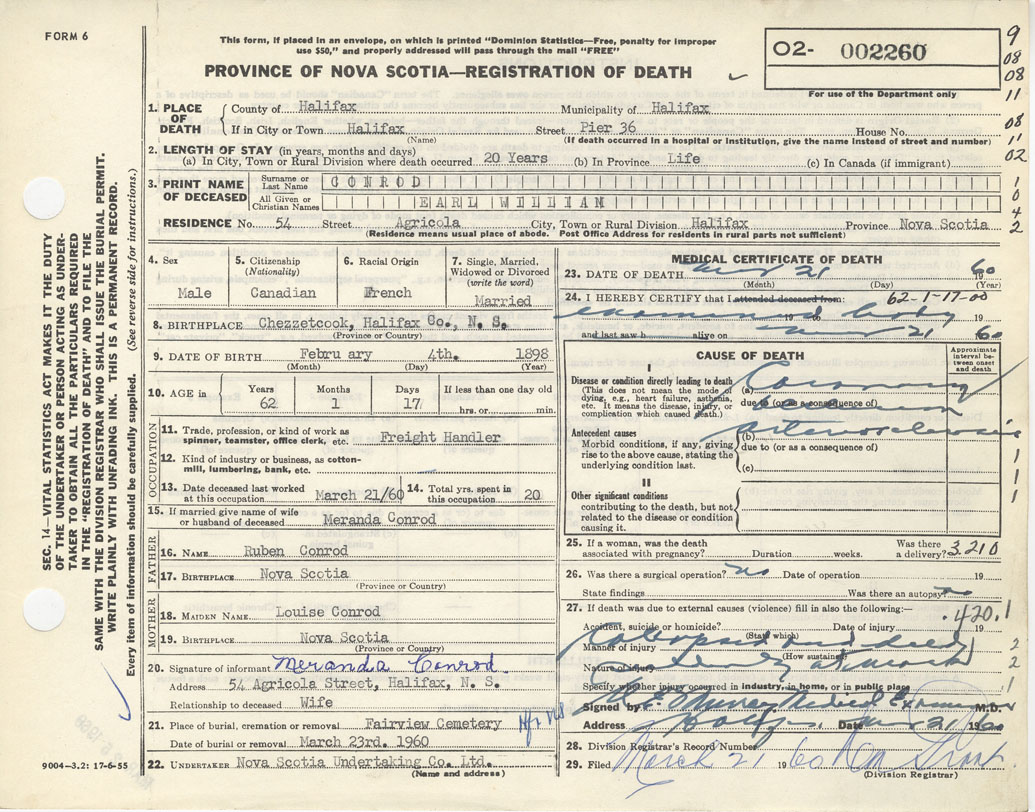 FORM 6
This form, if placed in an envelope, on which is printed "Dominion Statistics—Free, penalty for improper
use $50," and properly addressed will pass through the mail "FREE"
PROVINCE OF NOVA SCOTIA—REGISTRATION OF DEATH
O2- 002260
For use of the Department only
9
08
08
11
08
11
02
1
0
4
2
SEC. 14—VITAL STATISTICS ACT MAKES IT THE DUTY
OF THE UNDERTAKER OR PERSON ACTING AS UNDER-
TAKER TO OBTAIN ALL THE PARTICULARS REQUIRED
IN THE "REGISTRATION OF DEATH" AND TO FILE THE
SAME WITH THE DIVISION REGISTRAR WHO SHALL ISSUE THE BURIAL PERMIT.
WRITE PLAINLY WITH UNFADING INK. THIS IS A PERMANENT RECORD.
Every item of information should be carefully supplied. (See reverse side for instructions.)
1. PLACE OF DEATH
County of Halifax Municipality of Halifax
If in City or Town Halifax Street Pier 36 House No.
(Name) (If death occurred in a hospital or institution, give the name instead of street and number)
2. LENGTH OF STAY (in years, months and days)
(a) In City, Town or Rural Division where death occurred 20 Years (b) In Province Life (c) In Canada (if immigrant)
3. PRINT NAME OF DECEASED
Surname or Last Name CONROD
All Given or Christian Names EARL WILLIAM
RESIDENCE No. 54 Street Agricola City, Town or Rural Division Halifax Province Nova Scotia
(Residence means usual place of abode. Post Office Address for residents in rural parts not sufficient)
4. Sex
Male
5. Citizenship
(Nationality)
Canadian
6. Racial Origin
French
7. Single, Married,
Widowed or Divorced
(write the word)
Married
8. BIRTHPLACE Chezzetcook, Halifax Co., N. S.
(Province or Country)
9. DATE OF BIRTH February 4th. 1898
(Month) (Day) (Year)
10. AGE in
Years Months Days If less than one day old
62 1 17 hrs. or min.
OCCUPATION
11. Trade, profession, or kind of work as
spinner, teamster, office clerk, etc. Freight Handler
12. Kind of industry or business, as cotton-
mill, lumbering, bank, etc. —
13. Date deceased last worked
at this occupation March 21/60
14. Total yrs. spent in
this occupation 20
15. If married give name of wife
or husband of deceased Meranda Conrod
FATHER
16. NAME Ruben Conrod
17. BIRTHPLACE Nova Scotia
(Province or Country)
MOTHER
18. MAIDEN NAME Louise Conrod
19. BIRTHPLACE Nova Scotia
(Province or Country)
20. Signature of informant Meranda Conrod
Address 54 Agricola Street, Halifax, N. S.
Relationship to deceased Wife
21. Place of burial, cremation or removal Fairview Cemetery
Date of burial or removal March 23rd. 1960
22. UNDERTAKER Nova Scotia Undertaking Co. Ltd.
(Name and address)
9004—3.2: 17-6-55
MEDICAL CERTIFICATE OF DEATH
23. DATE OF DEATH 21 60
(Month) (Day) (Year)
24. I HEREBY CERTIFY that I attended deceased from: 62-1-17-00
examined body 19
and last saw h alive on 21 60
CAUSE OF DEATH
Approximate interval between onset and death
I
Disease or condition directly leading to death
(This does not mean the mode of
dying, e.g., heart failure, asthenia,
etc. It means the disease, injury, or
complication which caused death.)
(a) Coronary
due to (or as a consequence of)
Antecedent causes
Morbid conditions, if any, giving
rise to the above cause, stating the
underlying condition last.
(b) arteriosclerosis
due to (or as a consequence of)
(c)
II
Other significant conditions
contributing to the death, but not
related to the disease or condition
causing it.
1
1
1
1
25. If a woman, was the death
associated with pregnancy? Duration weeks. Was there
a delivery? 3.210
26. Was there a surgical operation? no Date of operation 19
State findings Was there an autopsy? no
27. If death was due to external causes (violence) fill in also the following:— .420.1
Accident, suicide or homicide? Date of injury 19
(State which)
Collapsed and died
Manner of injury 2
(How sustained)
Nature of injury suddenly at work 2
Specify whether injury occurred in industry, in home, or in public place 1
Signed by Murray Medical Examiner M.D.
Address Date 21 1960
28. Division Registrar's Record Number
29. Filed March 21 1960
(Division Registrar)